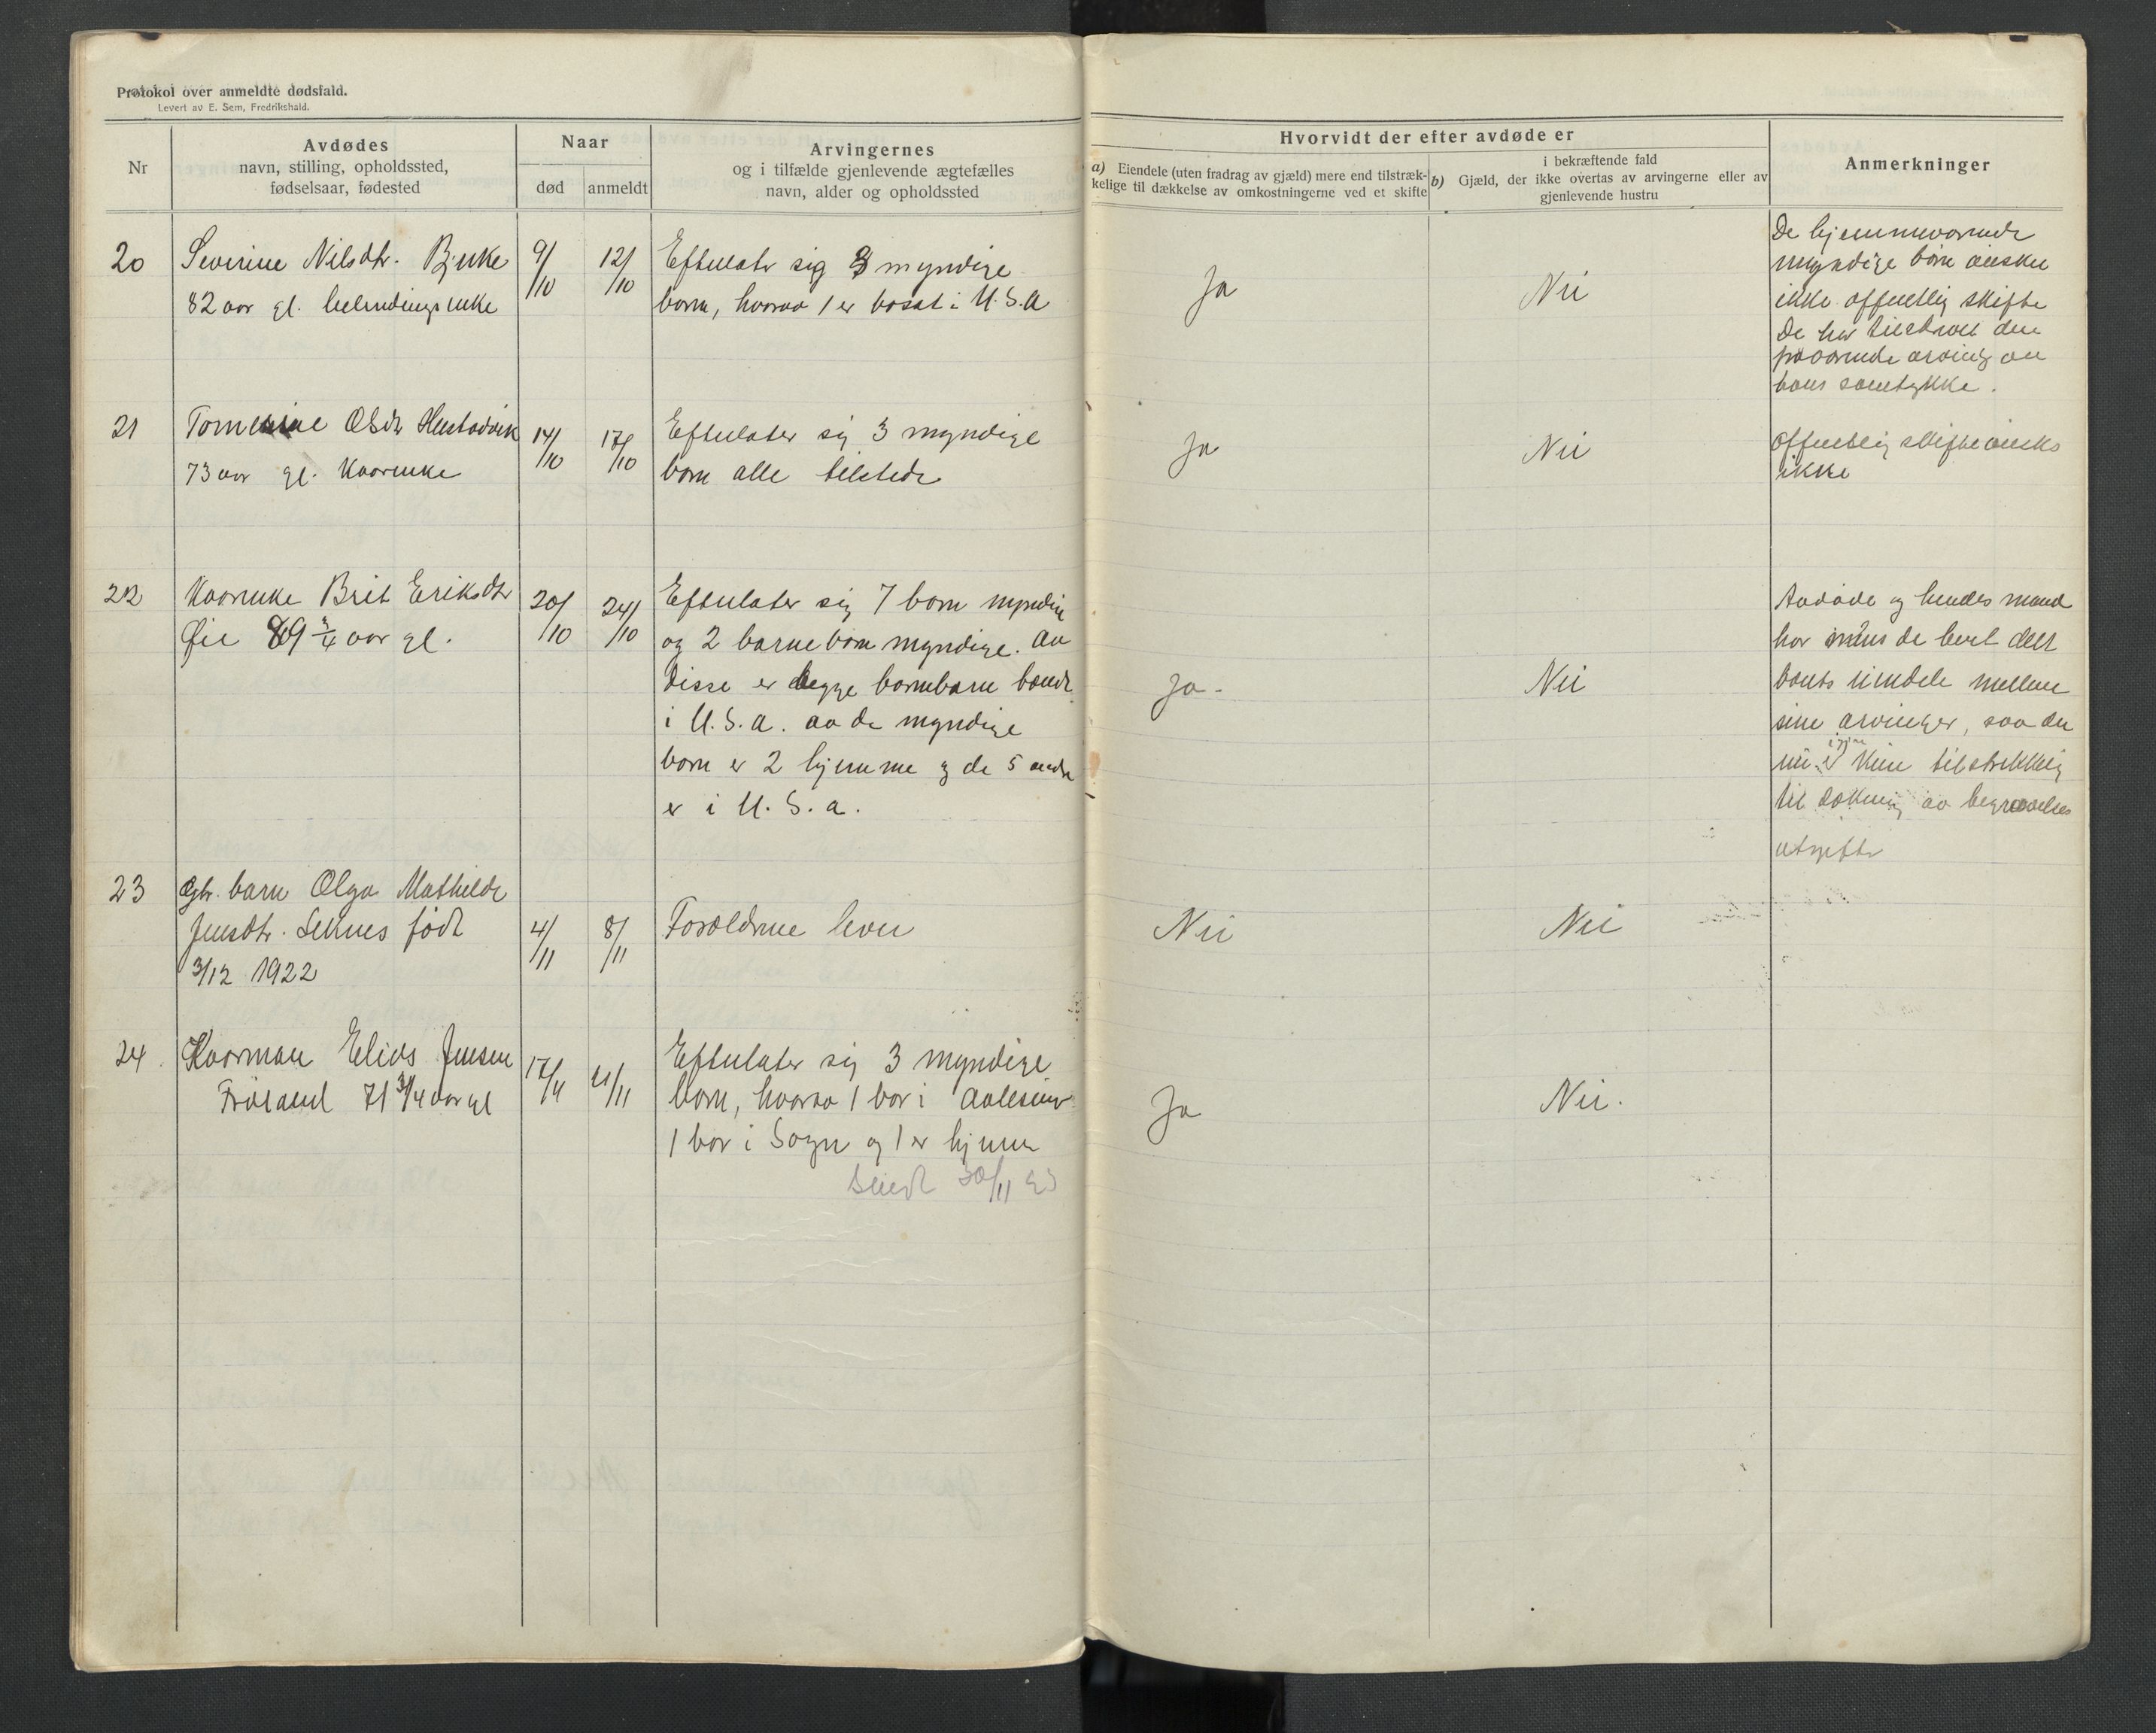 Protokol over anmeldte dødsfald.
Levert av E. Sem, Fredrikshald.
Nr
Avdødes
navn, stilling, opholdssted,
fødselsaar, fødested
Naar
død
anmeldt
Arvingernes
og i tilfælde gjenlevende ægtefælles
navn, alder og opholdssted
Hvorvidt der efter avdøde er
a) Eiendele (uten fradrag av gjæld) mere end tilstræk-
kelige til dækkelse av omkostningerne ved et skifte
i bekræftende fald
b) Gjæld, der ikke overtas av arvingerne eller av
gjenlevende hustru
Anmerkninger
20
Severine Nilsdtr.
82 aar gl.
9/10
12/10
Efterlater sig 3 myndige
barn, hvorav 1 er bosat i U.S.A
Ja
Nei
De hjemmeværende
myndige børn ønsker
ikke offentlig skifte
De har tilskrevet den
fraværende arving om
hans samtykke.
21
Olsdtr Hustadvik
73 aar gl. Kaarenke
14/10
17/10
Efterlater sig 3 myndige
barn alle tilstede
Ja
Nei
Offentlig skifte ønskes
ikke
22
Kaarenke Brit Eriksdtr
Øie 89 3/4 aar gl.
20/10
24/10
Efterlater sig 7 barn myndige
og 2 barnebarn myndige. Av
disse er begge barnebarn bosat
i U.S.A. av de myndige
barn er 2 hjemme og de 5 andre
er i U.S.A.
Ja.
Nei
Avdøde og hendes mand
har mens de levet delt
sine eiendele mellem
sine arvinger, saa der
igjen
nu er kun tilstrekkelig
til dækning av begravelses
utgifter
23
Gbr. barn Olga Mathilde
Jensdtr. Seknes født
3/12 1922
4/11
8/11
Forældrene lever
Nei
Nei
24.
Kaarman Elias Jensen
71 3/4 aar gl
17/11
21/11
Efterlater sig 3 myndige
barn, hvorav 1 bor i Aalesund
1 bor i Sogn og 1 er hjemme
Sendt 30/11 23
Ja
Nei.